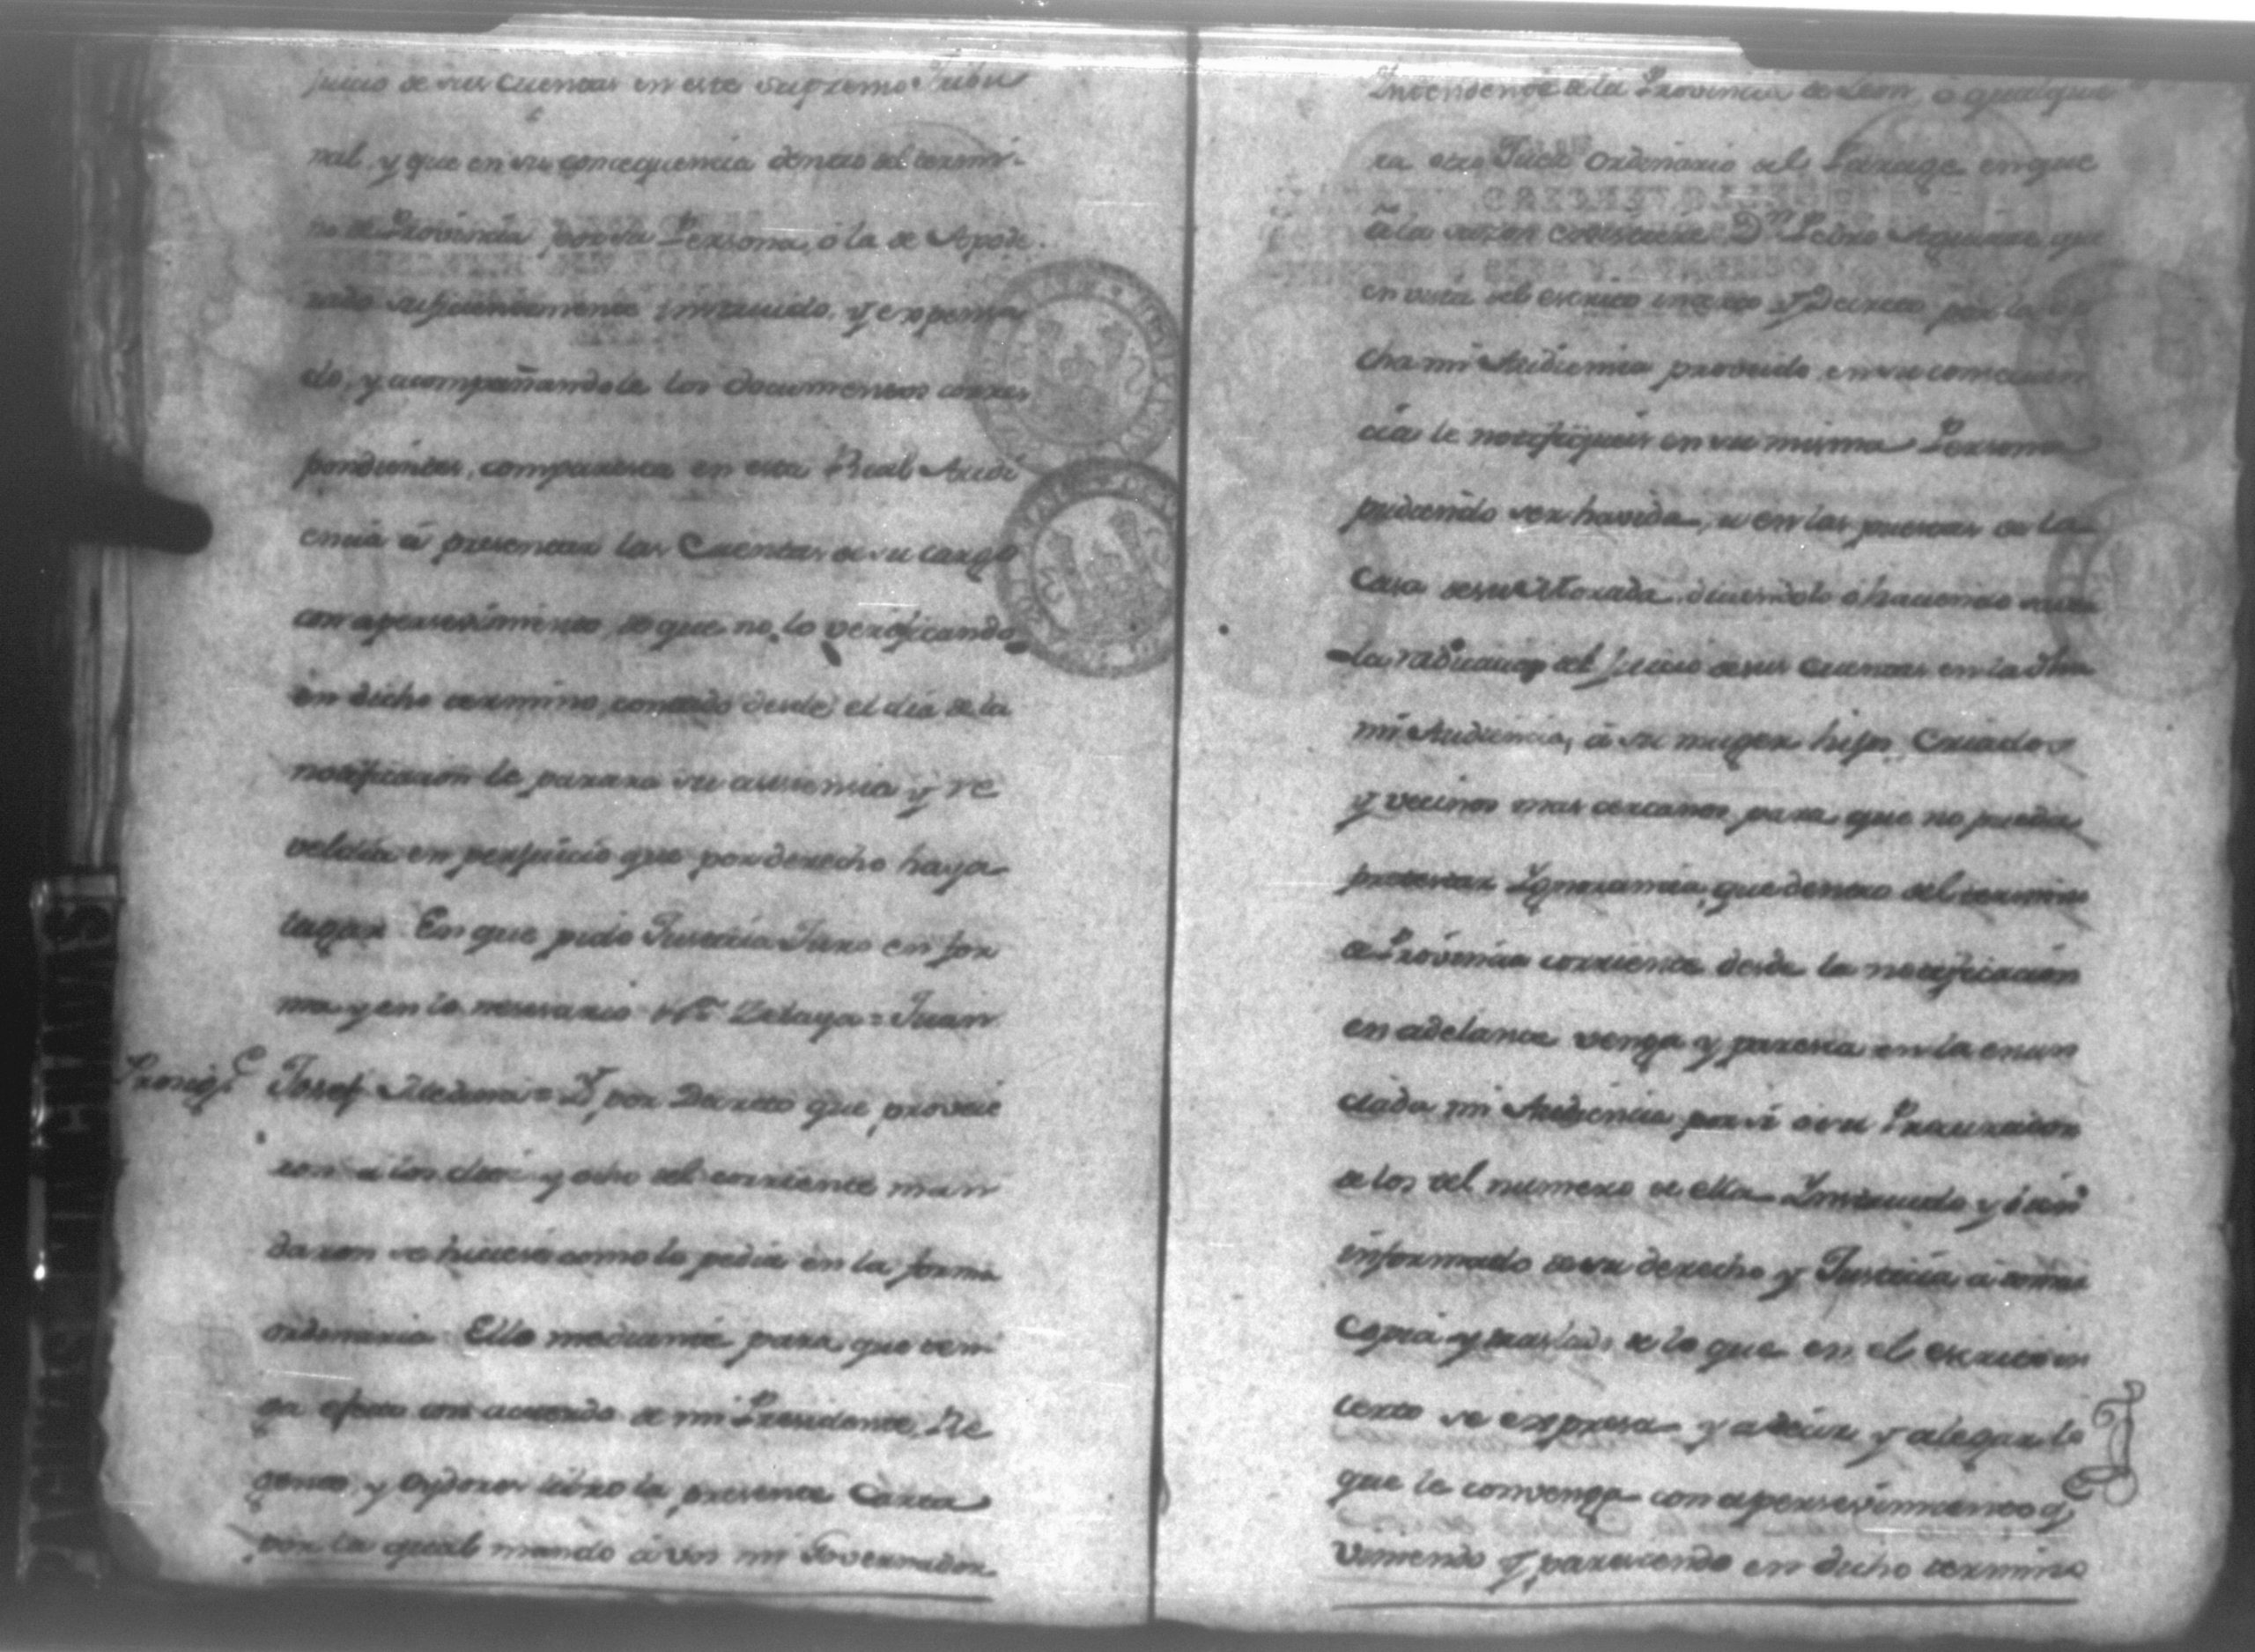 juicio de sus Cuentas en este Supremo Tribu
nal, y que en su consequencia dentro del termi-
no de Provincia por su Persona, o la de Apode
rado suficientemente instruido, y expensa
do, y acompañandole los documentos corres
pondientes, comparesca en esta Real Audi
encia á presentar las Cuentas de su cargo
con apersevimiento, de que no lo verificando
en dicho termino, contado desde el dia de la
notificacion le parara su ausencia y re
veldia en perjuicio que por derecho haya
lugar. En que pido Justicia Juro en for
ma y en lo necesario Zelaya = Juan
Prosigᵉ Josef = Y por Decreto que provei
ron a los diez y ocho del corriente man
daron se hiciese como lo pedia en la forma
ordinaria. Ello mediante para que ten
ga efecto con acuerdo de mi Presidente, Re
gente, y Oydores libro la presente Carta
por la qual mando á vos mi Governador
Intendente de la Provincia de Leon, o qualquie
ra otro Juez Ordinario del Parage en que
á la sazon existiere Dⁿ Pedro que
en vista del escrito inserto y Decreto por la di
cha mi Audiencia proveido, en su consequen
cia le notifiqueis en su misma Persona
pudiendo ser havida, u en las puertas de la
Casa de su Morada diciendolo o haciendo saver
la radicacion del Juicio de sus Cuentas en la dha
mi Audiencia, á su muger hijos, Criados
y vecinos mas cercanos, para que no pueda
protestar Ygnorancia, que dentro del termino
de Provincia corriente desde la notificacion
en adelante venga y paresca en la enun
ciada mi Audiencia por si o su Procurador
de los del numero de ella Ynstruido y bien
informado de su derecho y Justicia á tomar
Copia y traslado de lo que en el escrito in
certo se expresa y a decir y alegar lo
que le convenga con apersevimiento q
viniendo y paresciendo en dicho termino